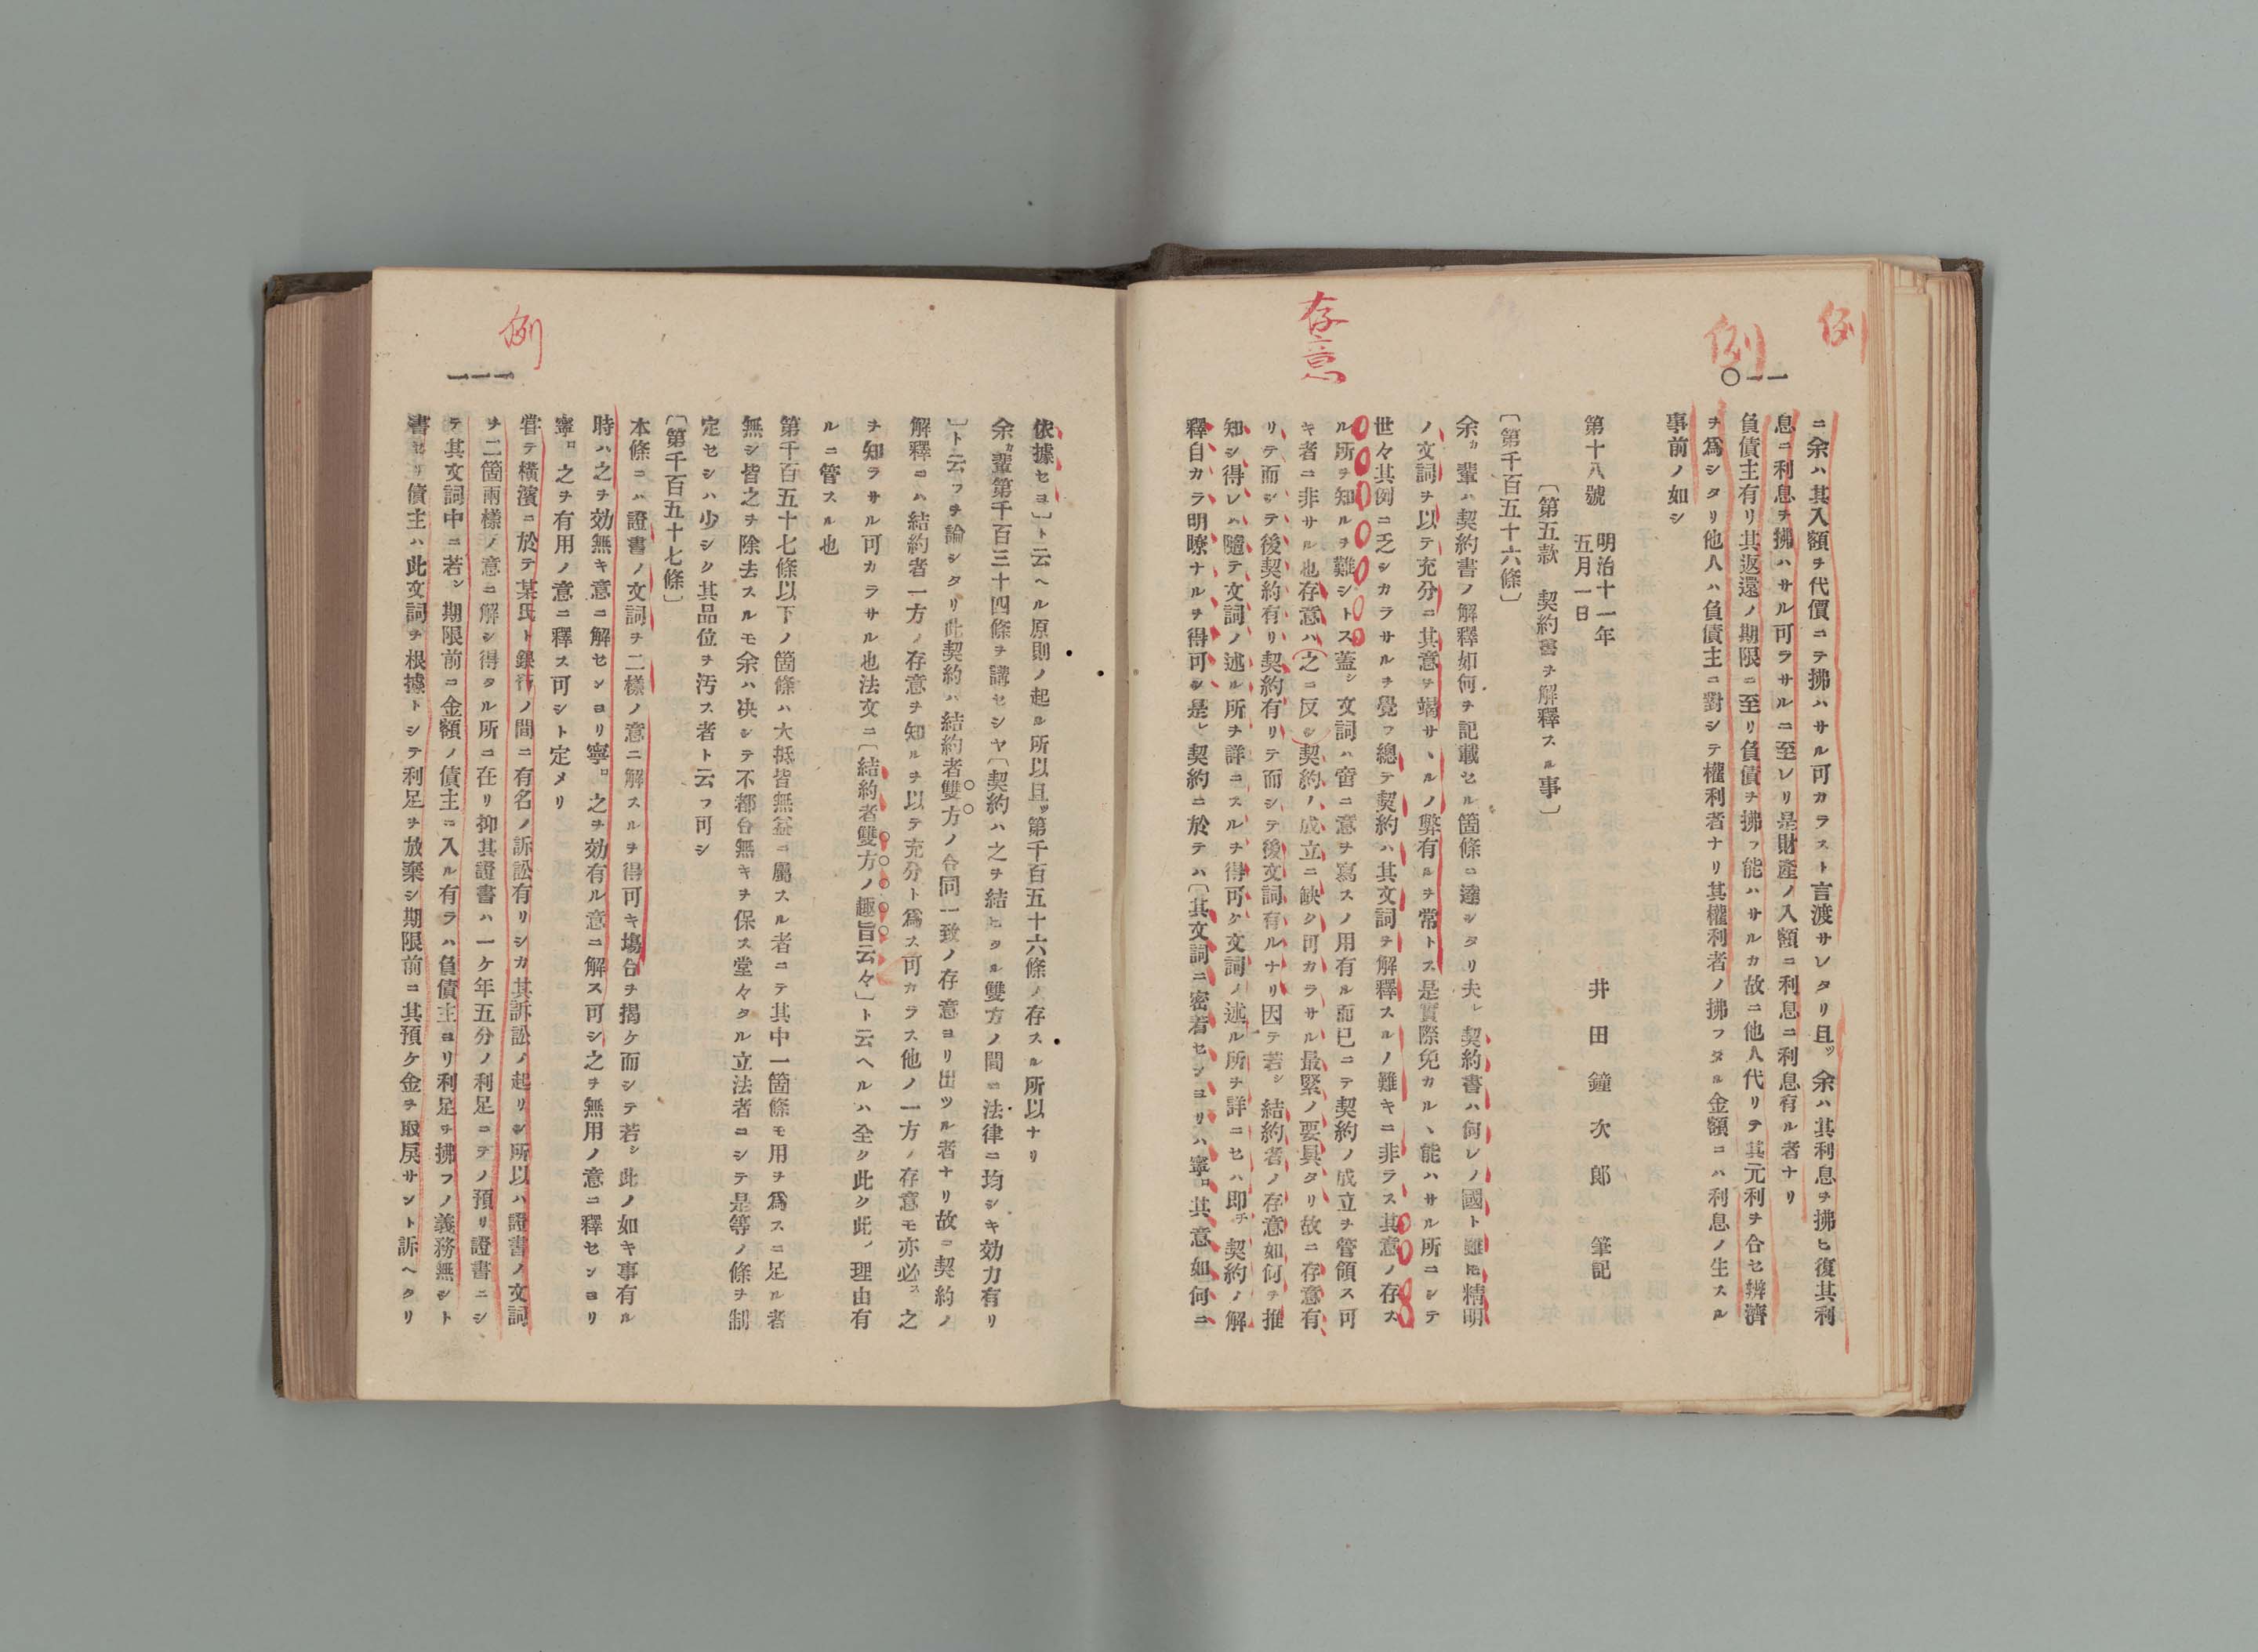 例
例
存意
一一〇
ニ余ハ其入額ヲ代價ニテ拂ハサル可カラスト言渡サレタリ且ッ余ハ其利息ヲ拂ヒ復其利
息ニ利息ヲ拂ハサル可ラサルニ至レリ是財產ノ入額ニ利息ニ利息有ル者ナリ
負債主有リ其返還ノ期限ニ至リ負債ヲ拂フ能ハサルカ故ニ他人代リテ其元利ヲ合セ辨濟
ヲ爲シタリ他人ハ負債主ニ對シテ權利者ナリ其權利者ノ拂フタル金額ニハ利息ノ生スル
事前ノ如シ
第十八號 明治十一年五月一日 井田鐘次郎 筆記
〔第五款 契約書ヲ解釋スル事〕
〔第千百五十六條〕
余カ輩ハ契約書ノ解釋如何ヲ記載セル箇條ニ達シタリ夫レ契約書ハ何レノ國ト雖𪜈精明
ノ文詞ヲ以テ充分ニ其意ヲ竭サヽルノ弊有ルヲ常トス是實際免カルヽ能ハサル所ニシテ
世々其例ニ乏シカラサルヲ覺フ總テ契約ハ其文詞ヲ解釋スルノ難キニ非ラス其意ノ存ス
ル所ヲ知ルヲ難シトス蓋シ文詞ハ啻ニ意ヲ寫スノ用有ル而已ニテ契約ノ成立ヲ管領ス可
キ者ニ非サル也存意ハ之ニ反シ契約ノ成立ニ缺ク可カラサル最緊ノ要具タリ故ニ存意有
リテ而シテ後契約有リ契約有リテ而シテ後文詞有ルナリ因テ若シ結約者ノ存意如何ヲ推
知シ得レハ隨テ文詞ノ述ル所ヲ詳ニスルヲ得可ク文詞ノ述ル所ヲ詳ニセハ即チ契約ノ解
釋自カラ明瞭ナルヲ得可シ是レ契約ニ於テハ〔其文詞ニ密着センヨリハ寧ロ其意如何ニ
例
一一一
依據セヨ〕ト云ヘル原則ノ起ル所以且ッ第千百五十六條ノ存スル所以ナリ
余カ輩第千百三十四條ヲ講セシヤ〔契約ハ之ヲ結ヒタル雙方ノ間ニ法律ニ均シキ効力有リ
〕ト云フヲ論シタリ此契約ハ結約者雙方ノ合同一致ノ存意ヨリ出ツル者ナリ故ニ契約ノ
解釋ニハ結約者一方ノ存意ヲ知ルヲ以テ充分ト爲ス可カラス他ノ一方ノ存意モ亦必ス之
ヲ知ラサル可カラサル也法文ニ〔結約者雙方ノ趣旨云々〕ト云ヘルハ全ク此ノ理由有
ルニ管スル也
第千百五十七條以下ノ箇條ハ大抵皆無益ニ屬スル者ニテ其中一箇條モ用ヲ爲スニ足ル者
無シ皆之ヲ除去スルモ余ハ决シテ不都合無キヲ保ス堂々タル立法者ニシテ是等ノ條ヲ制
定セシハ少シク其品位ヲ汚ス者ト云フ可シ
〔第千百五十七條〕
本條ニハ證書ノ文詞ヲ二樣ノ意ニ解スルヲ得可キ塲合ヲ揭ケ而シテ若シ此ノ如キ事有ル
時ハ之ヲ効無キ意ニ解センヨリ寧ロ之ヲ効有ル意ニ解ス可シ之ヲ無用ノ意ニ釋センヨリ
寧ロ之ヲ有用ノ意ニ釋ス可シト定メリ
甞テ橫濱ニ於テ某氏ト銀行ノ間ニ有名ノ訴訟有リシカ其訴訟ノ起リシ所以ハ證書ノ文詞
ヲ二箇兩樣ノ意ニ解シ得タル所ニ在リ抑其證書ハ一ケ年五分ノ利足ニテノ預リ證書ニシ
テ其文詞中ニ若シ期限前ニ金額ノ債主ニ入ル有ラハ負債主ヨリ利足ヲ拂フノ義務無シト
書セリ債主ハ此文詞ヲ根據トシテ利足ヲ放棄シ期限前ニ其預ケ金ヲ取戾サント訴ヘタリ